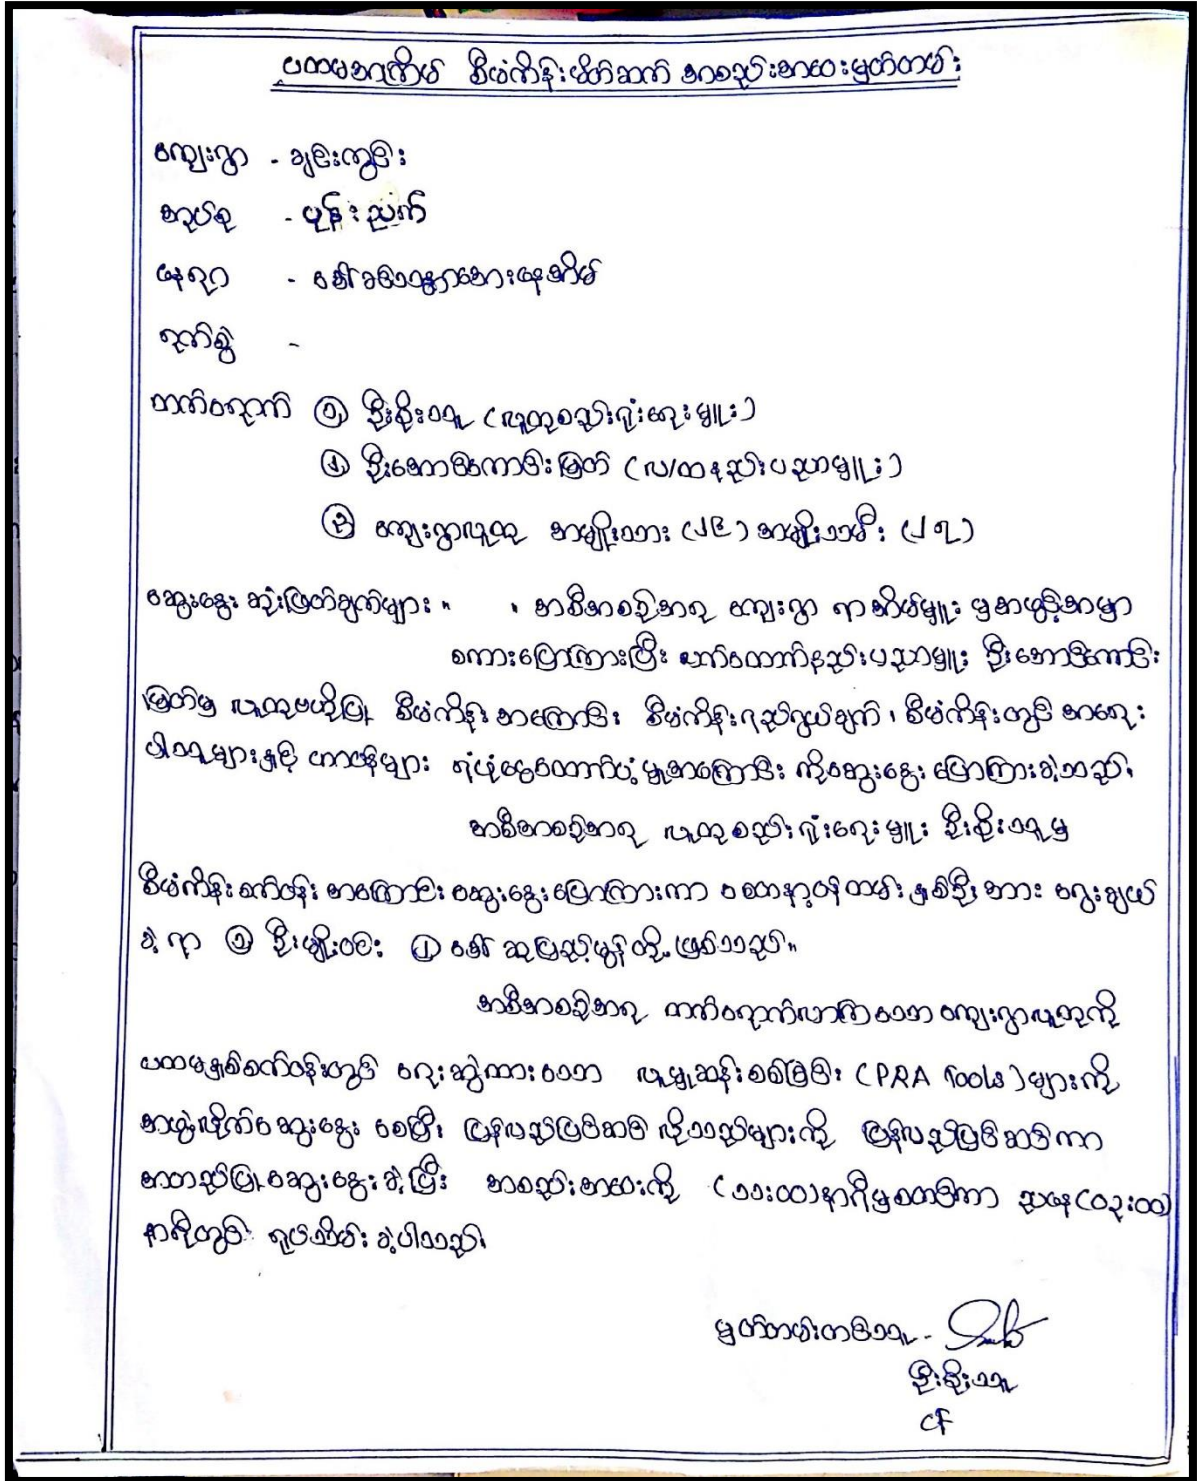 ပထမအကြိမ် စီမံကိန်းမိတ်ဆက် အစည်းအဝေးမှတ်တမ်း
ကျေးရွာ - ချင်းကွင်း
အုပ်စု - ပုန်းညက်
နေရာ - ဒေါ်ခင်သန္တာအေးနေအိမ်
ရက်စွဲ -
တက်ရောက် ၁ ဦးစိုးသူ (လူထုစည်းရုံးရေးမှူး)
၂ ဦးအောင်ကောင်းမြတ် (လ/ထ နည်းပညာမှူး)
၃ ကျေးရွာလူထု အမျိုးသား (၂၉) အမျိုးသမီး (၂၇)
ဆွေးနွေး ဆုံးဖြတ်ချက်များ။ ၊ အစီအစဉ်အရ ကျေးရွာ ရာအိမ်မှူး မှအဖွင့်အမှာ
စကားပြောကြားပြီး ယက်ထောက်နည်းပညာမှူး ဦးအောင်ကောင်း
မြတ်မှ လူထုဗဟိုပြု စီမံကိန်း အကြောင်း စီမံကိန်းရည်ရွယ်ချက်၊ စီမံကိန်းတွင် အရေး
ပါသူများနှင့် တာဝန်များ ရံပုံငွေထောက်ပံ့မှုအကြောင်း ကိုဆွေးနွေး ပြောကြားခဲ့သည်။
အစီအစဉ်အရ လူထုစည်းရုံးရေးမှူး ဦးစိုးသူမှ
စီမံကိန်းစက်ဝန်း အကြောင်း ဆွေးနွေးပြောကြားကာ စေတနာ့ဝန်ထမ်း နှစ်ဦး အား ရွေးချယ်
ခဲ့ရာ ၁ ဦးမျိုးဝင်း ၂ ဒေါ် ဆုပြည့်မွန် တို့ ဖြစ်သည်။
အစီအစဉ်အရ တက်ရောက်လာကြသော ကျေးရွာလူထုကို
ပထမနှစ်စက်ဝန်းတွင် ရေးဆွဲထားသော လူမှုဆန်းစစ်ခြင်း (PRA Tools) များကို
အဖွဲ့လိုက်ဆွေးနွေး စေပြီး ပြန်လည်ပြင်ဆင် လိုသည်များကို ပြန်လည်ပြင်ဆင်ကာ
အတည်ပြု ဆွေးနွေးခဲ့ပြီး အစည်းအဝေးကို (၁၁:၀၀)နာရီမှစတင်ကာ ညနေ(၀၃:၀၀)
နာရီတွင် ရုပ်သိမ်း ခဲ့ပါသည်။
မှတ်တမ်းတင်သူ -
ဦးစိုးသူ
CF